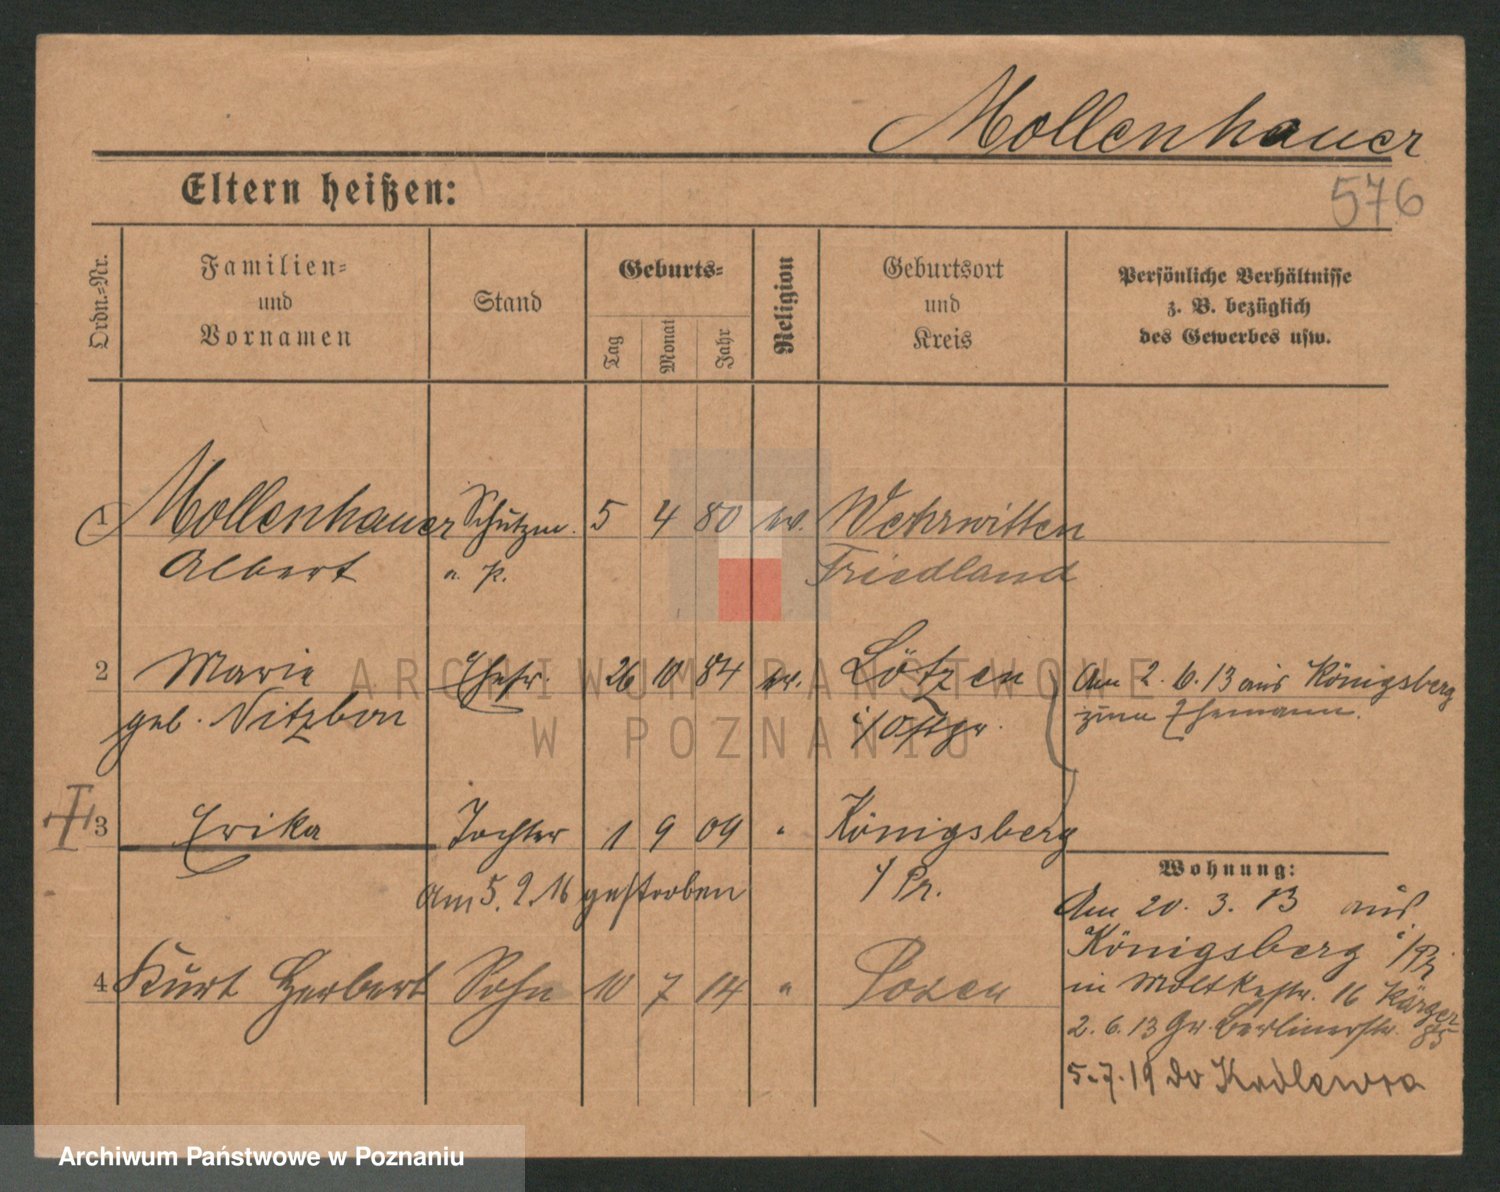 Mollenhauer
576
Eltern heißen:
Ordn.-Nr.
Familien- und Vornamen
Stand
Geburts-
Tag
Monat
Jahr
Religion
Geburtsort und Kreis
Persönliche Verhältnisse z. B. bezüglich des Gewerbes usw.
1 Mollenhauer Schutzm. 5 4 80 ev. Wehrwitten
Albert a. p. Friedland
2 Marie Ehefr. 26 10 84 ev. Lötzen Am 2. 6. 13 aus Königsberg
geb. Nitzbon i/Ostpr. zum Ehemann.
3 Erika Tochter 1 9 09 " Königsberg
i/Pr.
Am 5. 2. 16 gestorben
4 Kurt Herbert Sohn 10 7 14 " Posen
Wohnung:
Am 20. 3. 13 aus
Königsberg i/Pr.
in Moltkestr. 16
2. 6. 13 Gr. Berlinerstr. 85
5.7.19 do Królewca
ARCHIWUM PAŃSTWOWE
W POZNANIU
Archiwum Państwowe w Poznaniu